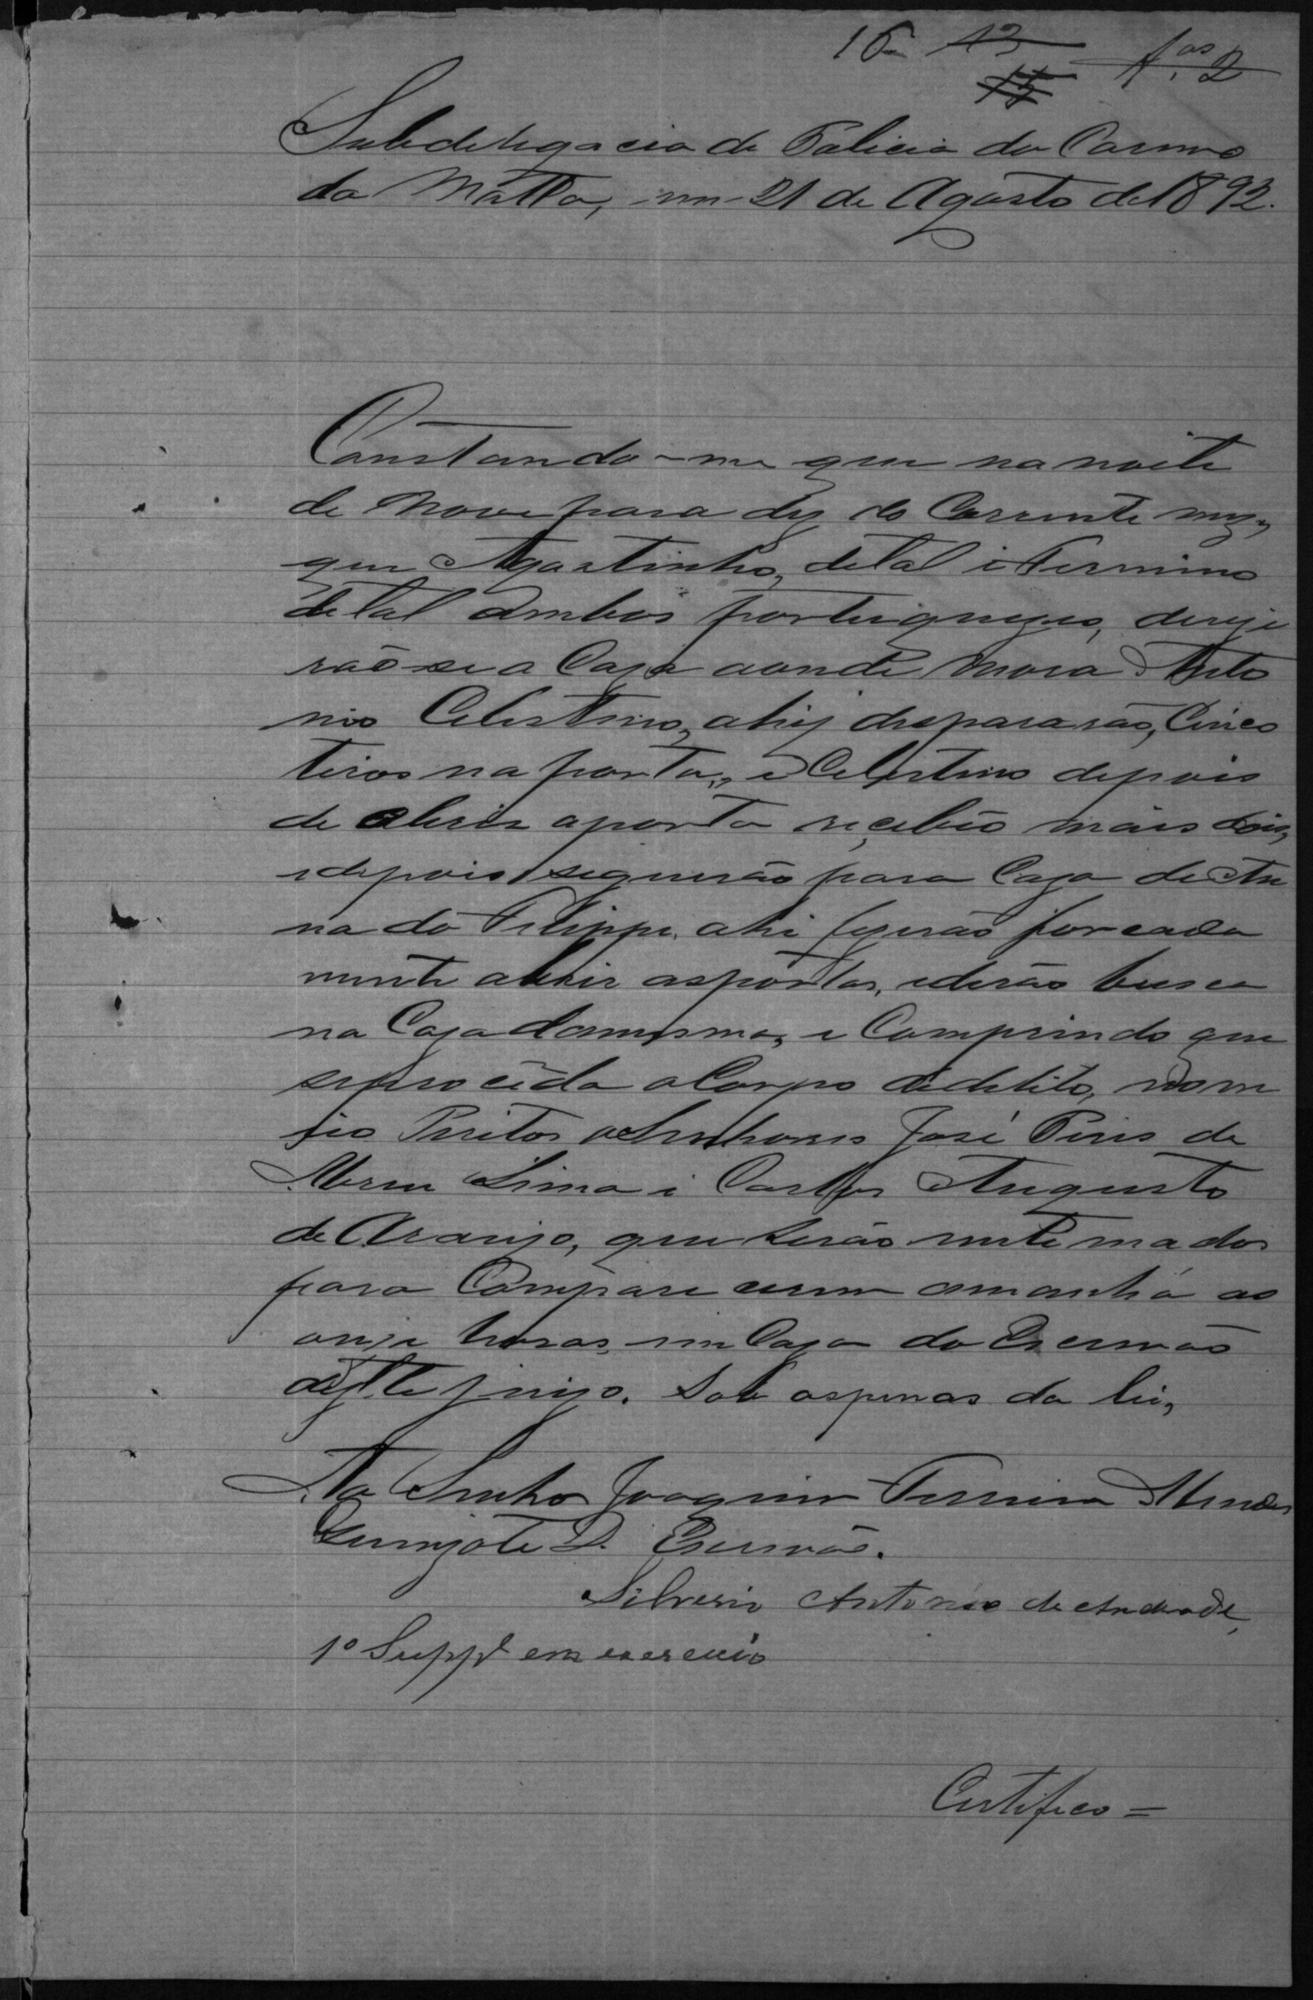 16 13 fas. 2
15
Subdelegacia de Policia do Carmo
da Matta, em 21 de Agosto de 1892.
Constando-me que na noite
de nove para dez do Corrente mez,
que Agostinho, de tal e Fermino
de tal ambos portuguezes, derije
rão-se a Caza aonde mora Anto
nio Celestino, ahi desparasão, Cinco
tiros na porta, e Celestino depois
de abrir a porta recebeo mais dois,
e depois seguirão para Caza de An
na do Felippe, ahi fizerão forcada
mente abrir as portas, e derão busca
na Caza da mesma, e Comprindo que
se proceda a Corpo de delito, nome
io Peritos os Senhores José Pires de
Abreu Lima e Carlos Augusto
de Araujo, que serão intemados
para Comparecerem amanhã as
onze horas, em Caza do Escrivão
deste juizo. Sob as penas da lei,
Ao Senhor Joaquim Ferreira Mendes
D. Escrivão.
Silverio Antonio de Andrade,
1º Suppe em exercicio
Certifico =